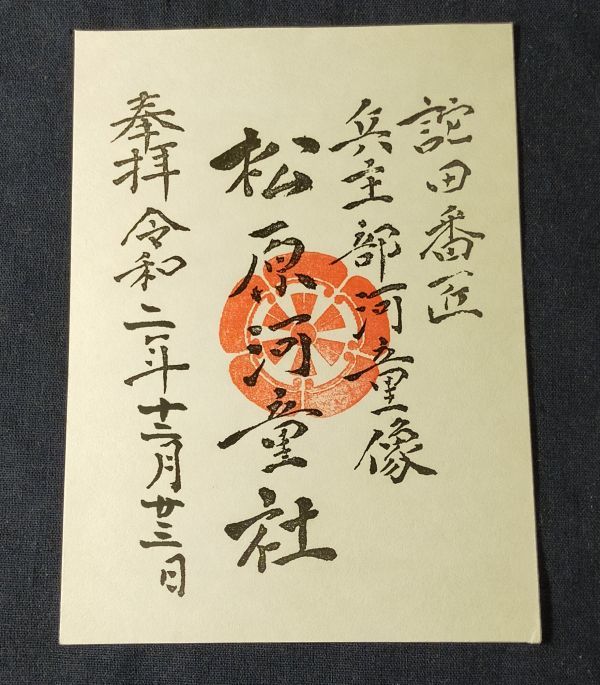 詑田番匠
兵主部河童像
松原河童社
奉拝 令和二年十二月廿三日